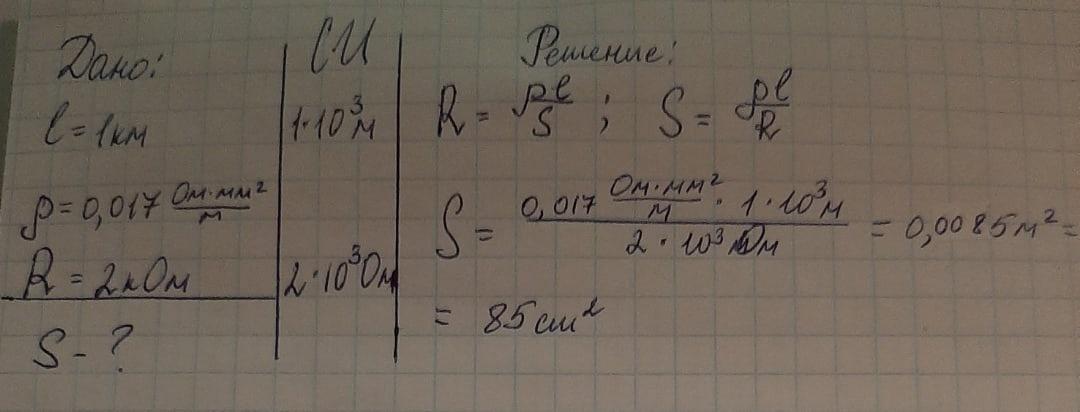 Дано:
l = 1км
ρ = 0,017 Ом·мм²/м
R = 2кОм
S - ?
СИ
1·10³м
2·10³Ом
Решение:
R = ρl/S ; S = ρl/R
S = 0,017 Ом·мм²/м · 1·10³м / 2·10³ Ом = 0,0085м² =
= 85см²